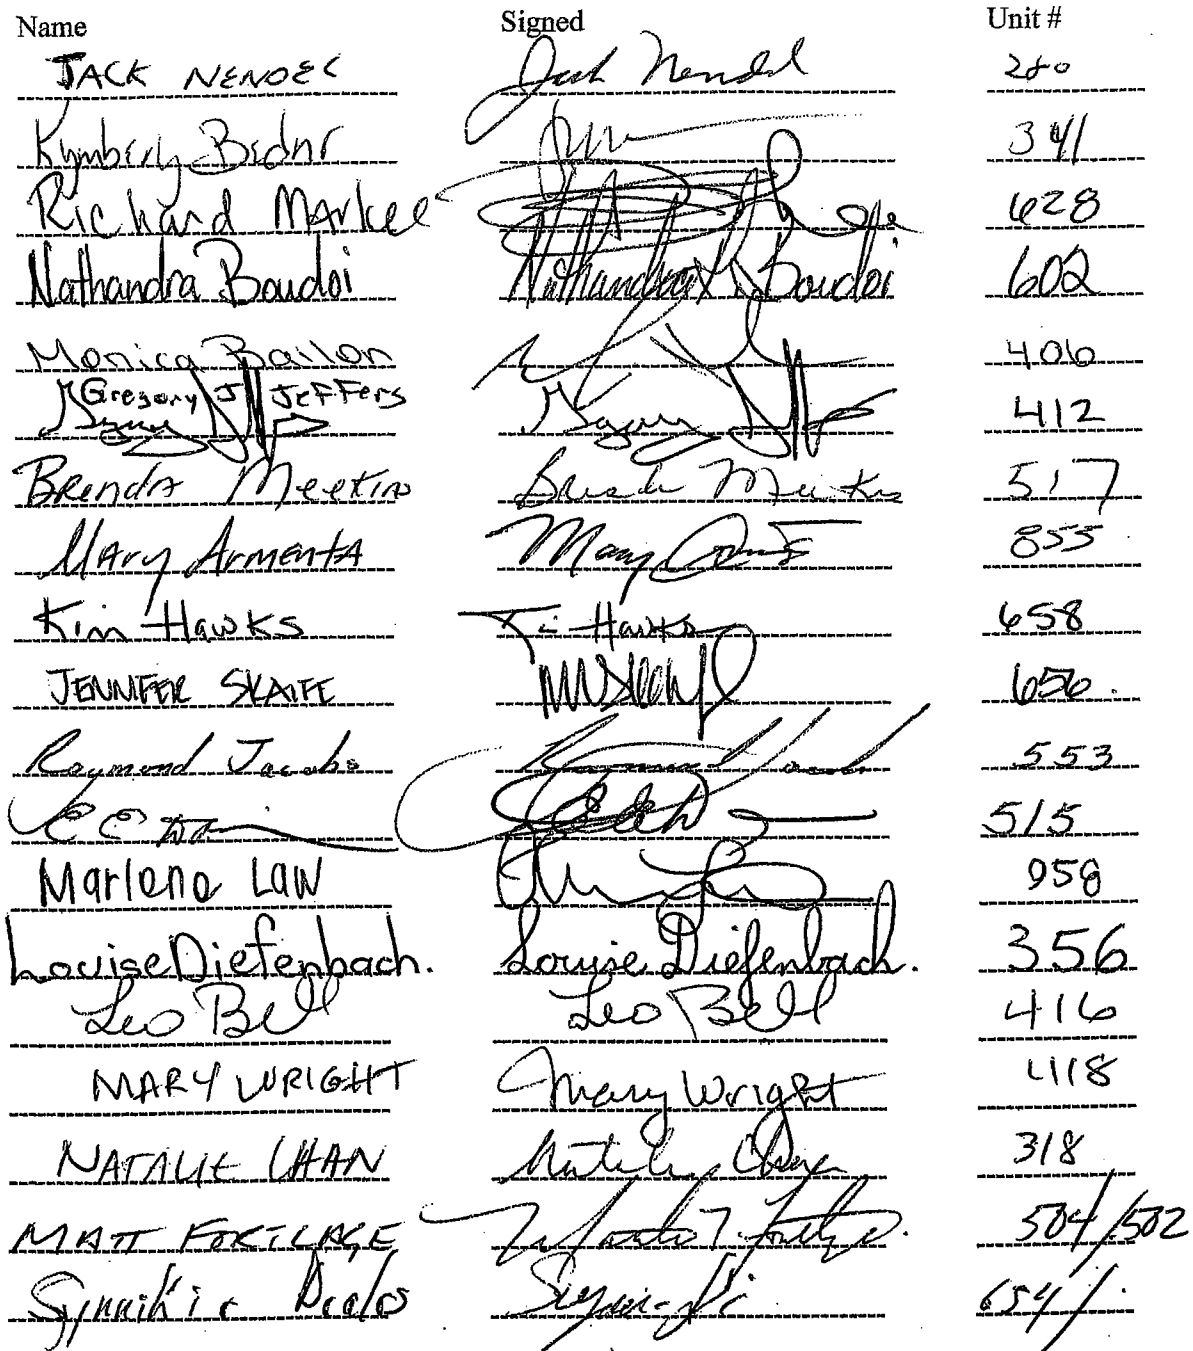 Name Signed Unit #
JACK NENDEL Jack Nendel 280
Kymberly Bednr 341
Richard Markee 628
Nathandra Boudoi Nathandra Boudoi 602
Monica Bailon 406
Gregory J JEFFers 412
Brenda Meekins Brenda Meekins 517
MAry ArmentA Mary 855
Kim Hawks Hawks 658
JENNIFER SKAIFE 656
Raymond Jacobs Raymond Jacobs 553
515
Marlene Law 958
Louise Diefenbach. Louise Diefenbach. 356
Leo Bell Leo Bell 416
MARY WRIGHT Mary Wright 418
NATALIE CHAN Natalie Chan 318
MATT 504/502
654